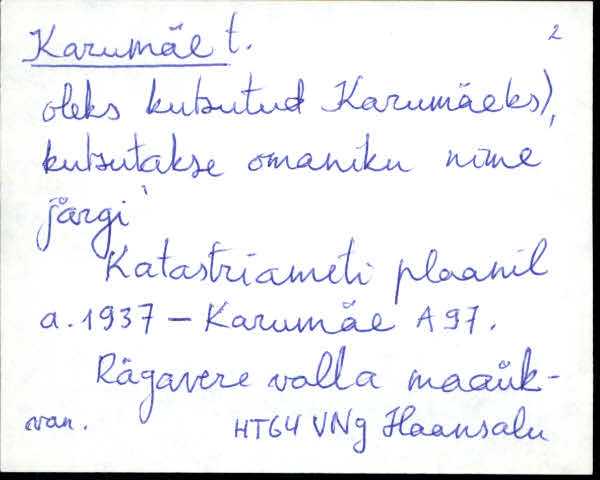 Karumäe t. 2
oleks kutsutud Karumäeks),
kutsutakse omaniku nime
järgi'
Katastriameti plaanil
a. 1937 – Karumäe A 97.
Rägavere valla maaük-
van. HT64 VNg Haansalu